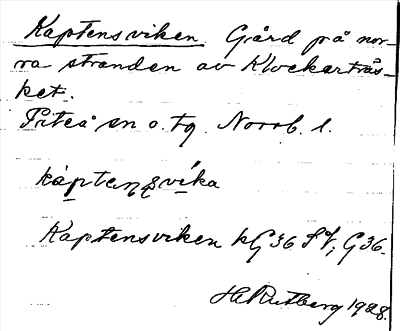 Kaptensviken. Gård på nor-
ra stranden av Klockarträs-
ket.
Piteå sn o. tg. Norrb. l.
káptenʂvíka
Kaptensviken kG 36 SV; G 36.
H. Rutberg 1928.